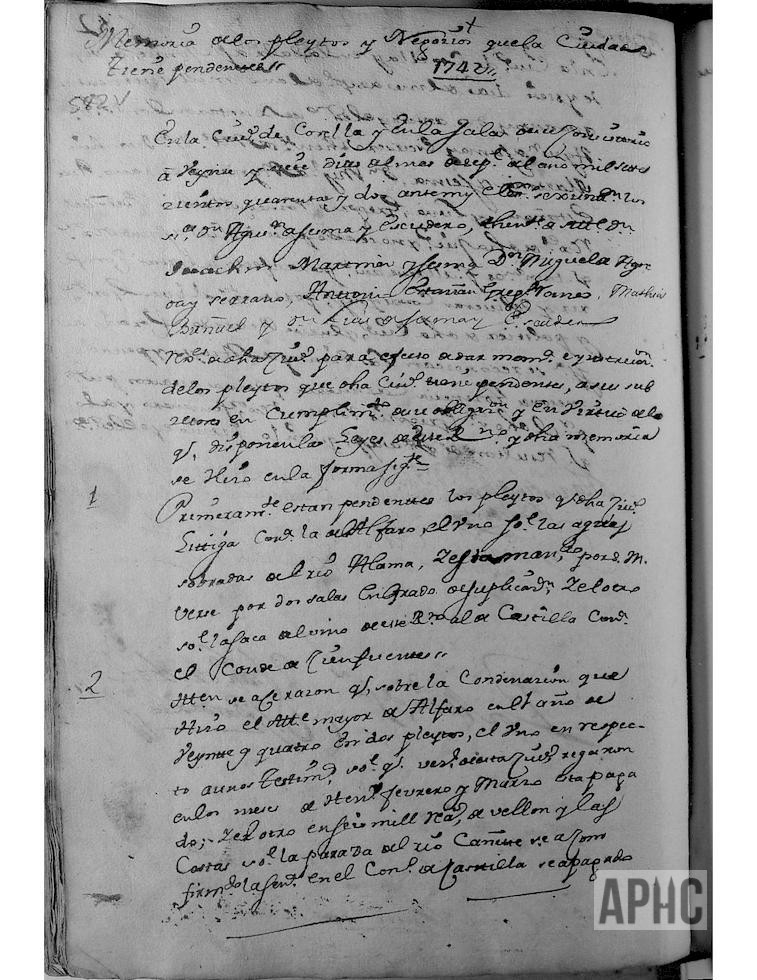 Memoria de los pleytos y Negozios que la Ciudad
tiene pendentes //
1742 //
582 V
En la Ciud. de Corella y en la sala de su Consistorio
a Veynte y nueve dias del mes de sep.e del año mil sete
zientos quarenta y dos ante my el ess.no se xuntaron los
s.res Dn Agu.n de sesma y Escudero, then.te de Alc.de Dn
Joachin Martinez y sesma Dn Miguel de Agre
da y serrano, Antonio Greg.o Torres, Mathias
Buñuel y Dn Luis de sesma y Escudero
Rex.s de dha Ciud. para efecto de dar mem.a e ynstrucion
de los pleytos que dha Ciud. tiene pendentes, a sus sub
zesores en Cumplim.to de su obligaz.on y en Virtud de lo
q.e disponen las Leyes de este R.no y dha memoria
se Hizo en la forma sig.te
1
Primeram.te estan pendentes los pleytos q.e dha Ciud.
Littiga con.a la de Alfaro, el Uno so.e las aguas
sobradas del rio Alama, Zesta mandado por S. M.
Verse por dos salas en Grado de suplicaz.on Zel otro
so.e la saca del vino de este R.no al de Castilla con.a
el Conde de Zienfuentes //
2
Itten se aze razon q.e sobre la Condenazion que
Hizo el Alc.e mayor de Alfaro en el año de
Veynte y quatro en dos pleytos, el Uno en respec-
to a unos testim.s so.e q.e vez.s de esta Ciud. regaron
en los meses de Hen.o febrero y Marzo esta paga
do; Zel otro en seis mill rea.s de vellon y las
Costas so.e la parada del rio Cañete se a
firm.do la sen.a en el Con.o de Castilla se a pagado
APHC